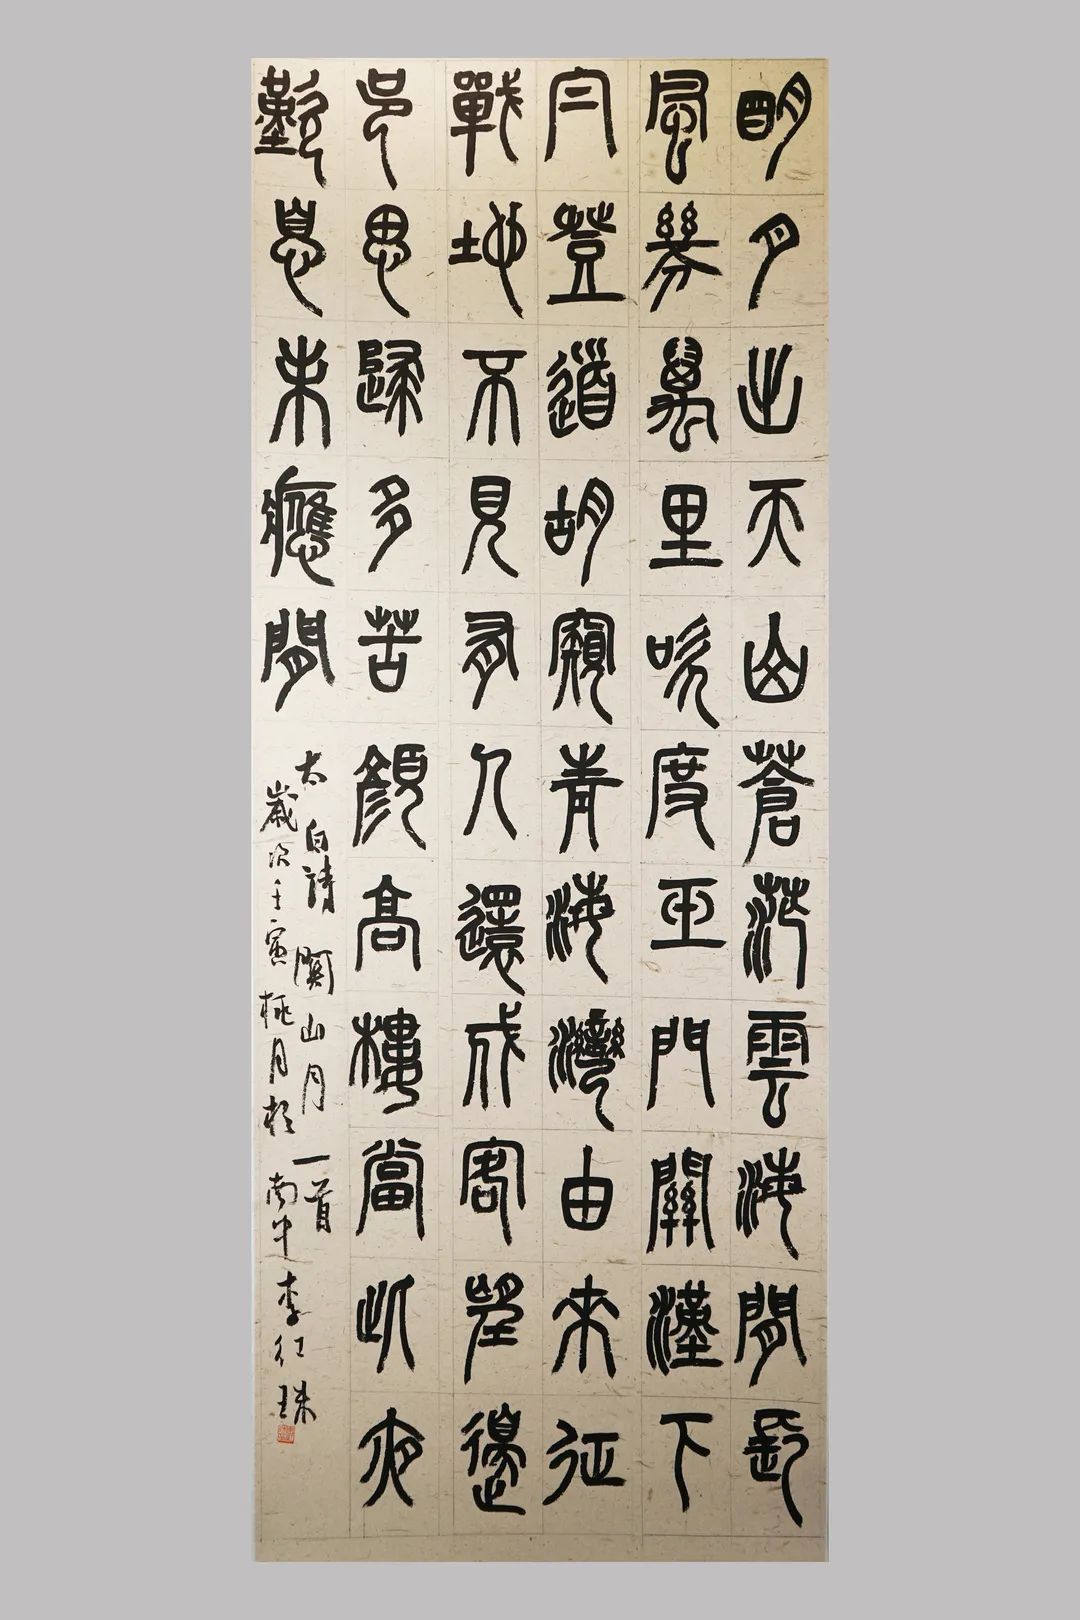 明月出天山蒼茫雲海閒長
風幾萬里吹度玉門關漢下
白登道胡窺青海灣由來征
戰地不見有人還戍客望邊
邑思歸多苦顏高樓當此夜
歎息未應閒
太白詩關山月一首
歲次壬寅桃月於南中李红珠